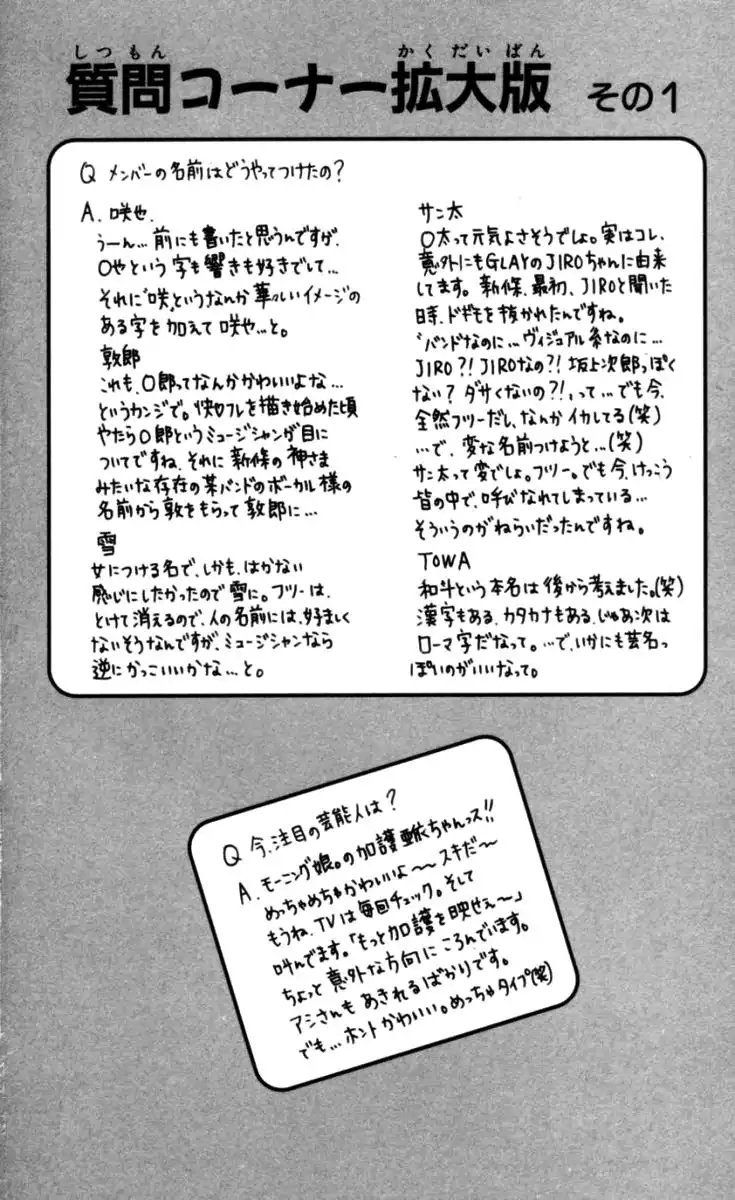 しつもん かくだいばん
質問コーナー拡大版 その1
Q メンバーの名前はどうやってつけたの?
A. 咲也
うーん…前にも書いたと思うんですが、
〇やという字も響きも好きでして…
それに"咲"というなんか華々しいイメージの
ある字を加えて咲也…と。
敦郎
これも、〇郎ってなんかかわいいよな…
というカンジで。快カレを描き始めた頃
やたら〇郎というミュージシャンが目に
ついてですね、それに新條の神さま
みたいな存在の某バンドのボーカル様の
名前から敦をもらって敦郎に…
雪
女につける名で、しかも、はかない
感じにしたかったので雪に。フツーは、
とけて消えるので、人の名前には、好ましく
ないそうなんですが、ミュージシャンなら
逆にかっこいいかな…と。
サン太
〇太って元気よさそうでしょ。実はコレ、
意外にもGLAYのJIROちゃんに由来
してます。新條、最初、JIROと聞いた
時、ドギモを抜かれたんですね。
"バンドなのに…ヴィジュアル系なのに…
JIRO?!JIROなの?!坂上次郎っぽく
ない?ダサくないの?!"って…でも今、
全然フツーだし、なんかイカしてる(笑)
…で、変な名前つけようと…(笑)
サン太って変でしょ。フツー。でも今、けっこう
皆の中で、呼びなれてしまっている…
そういうのがねらいだったんですね。
TOWA
和斗という本名は後から考えました。(笑)
漢字もある、カタカナもある、じゃあ次は
ローマ字だなって。…で、いかにも芸名っ
ぽいのがいいなって。
Q 今、注目の芸能人は?
A. モーニング娘。の加護亜依ちゃんっス!!
めっちゃめちゃかわいいよ〜〜スキだ〜
もうね、TVは毎回チェック。そして
叫んでます。「もっと加護を映せぇ〜」
ちょっと意外な方向にころんでいます。
アシさんもあきれるばかりです。
でも…ホントかわいい。めっちゃタイプ(笑)